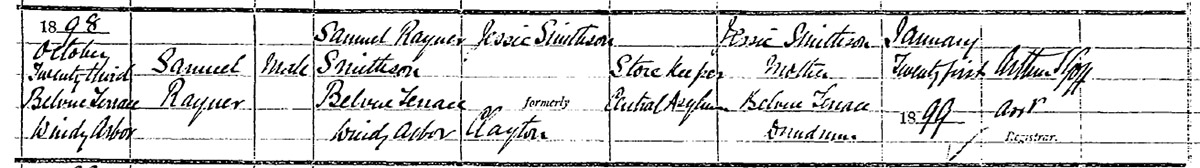 1898
October
Twenty third
Belvue Terrace
Windy Arbor
Samuel
Rayner
Male
Samuel Rayner
Smithson
Belvue Terrace
Windy Arbor
Jessie Smithson
formerly
Clayton
Store Keeper
Central Asylum
Jessie Smithson
Mother
Belvue Terrace
Dundrum
January
Twenty first
1899
Arthur
Asst
Registrar.